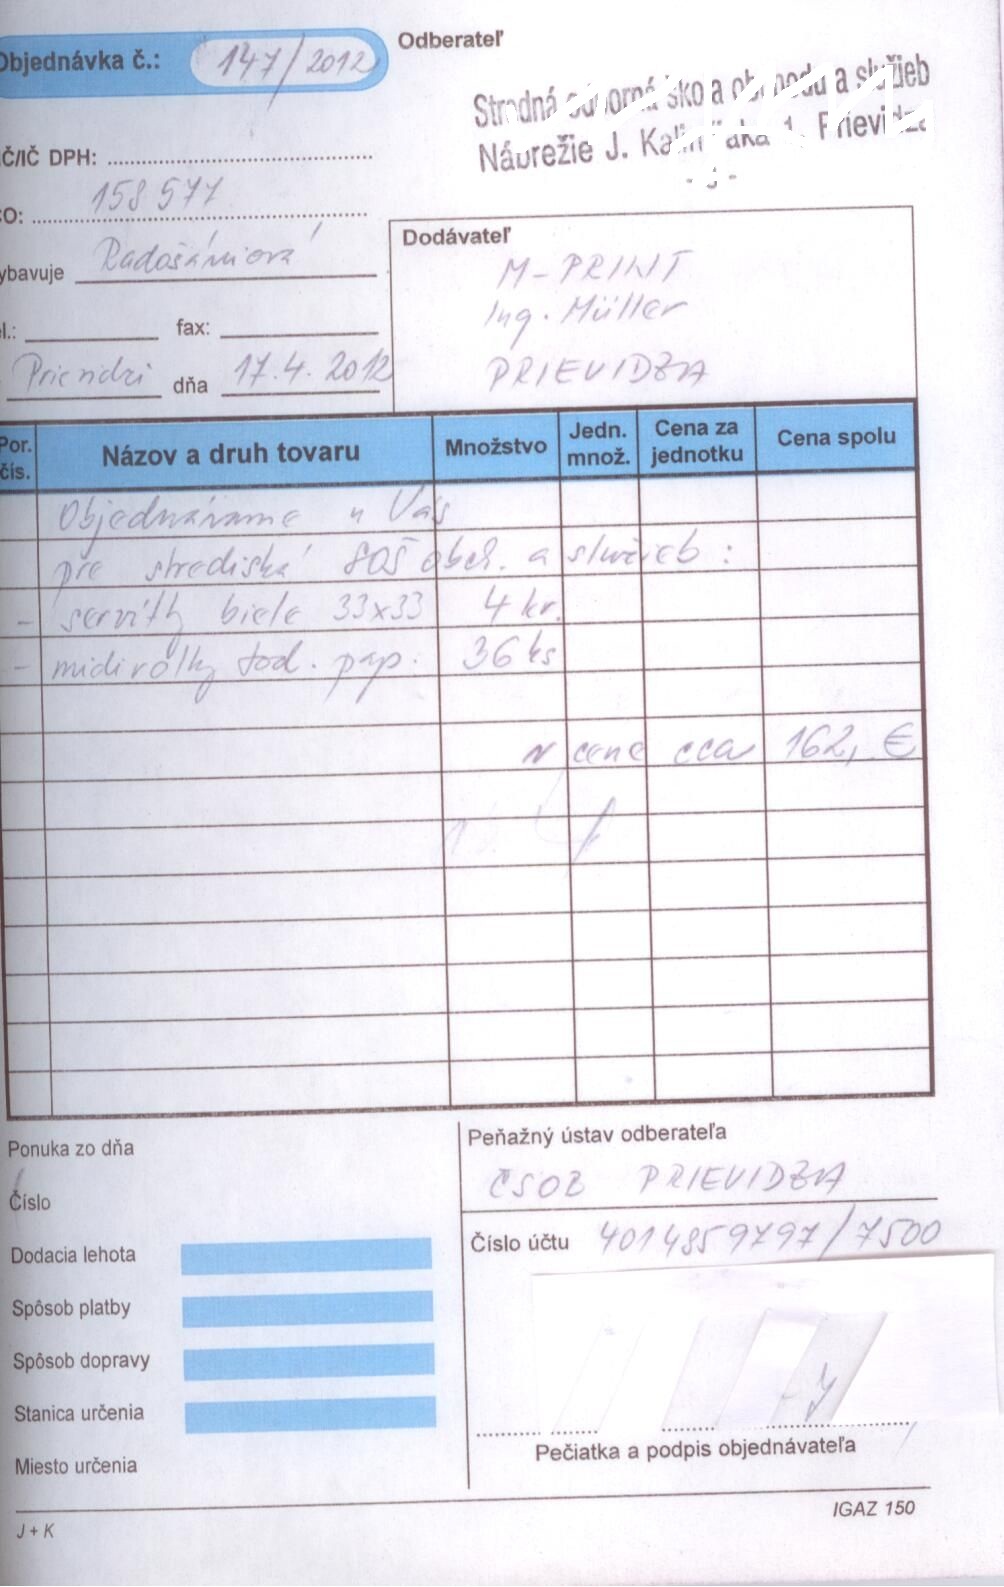 Objednávka č.: 147/2012
Odberateľ
Stredná odborná škola obchodu a služieb
Nábrežie J. Kalinčiaka 1, Prievidza
IČ/IČ DPH:
158 577
Vybavuje Radošániová
fax:
Prievidzi dňa 17.4.2012
Dodávateľ
M-PRINT
Ing. Müller
PRIEVIDZA
Por. čís. Názov a druh tovaru Množstvo Jedn. množ. Cena za jednotku Cena spolu
Objednávame u Vás
pre strediská SOŠ obch. a služieb:
- servítky biele 33x33 4 kr.
- midi rolky tod. pap. 36 ks
v cene cca 162,- €
Ponuka zo dňa
Číslo
Dodacia lehota
Spôsob platby
Spôsob dopravy
Stanica určenia
Miesto určenia
Peňažný ústav odberateľa
ČSOB PRIEVIDZA
Číslo účtu 4014859797/7500
Pečiatka a podpis objednávateľa
J + K
IGAZ 150